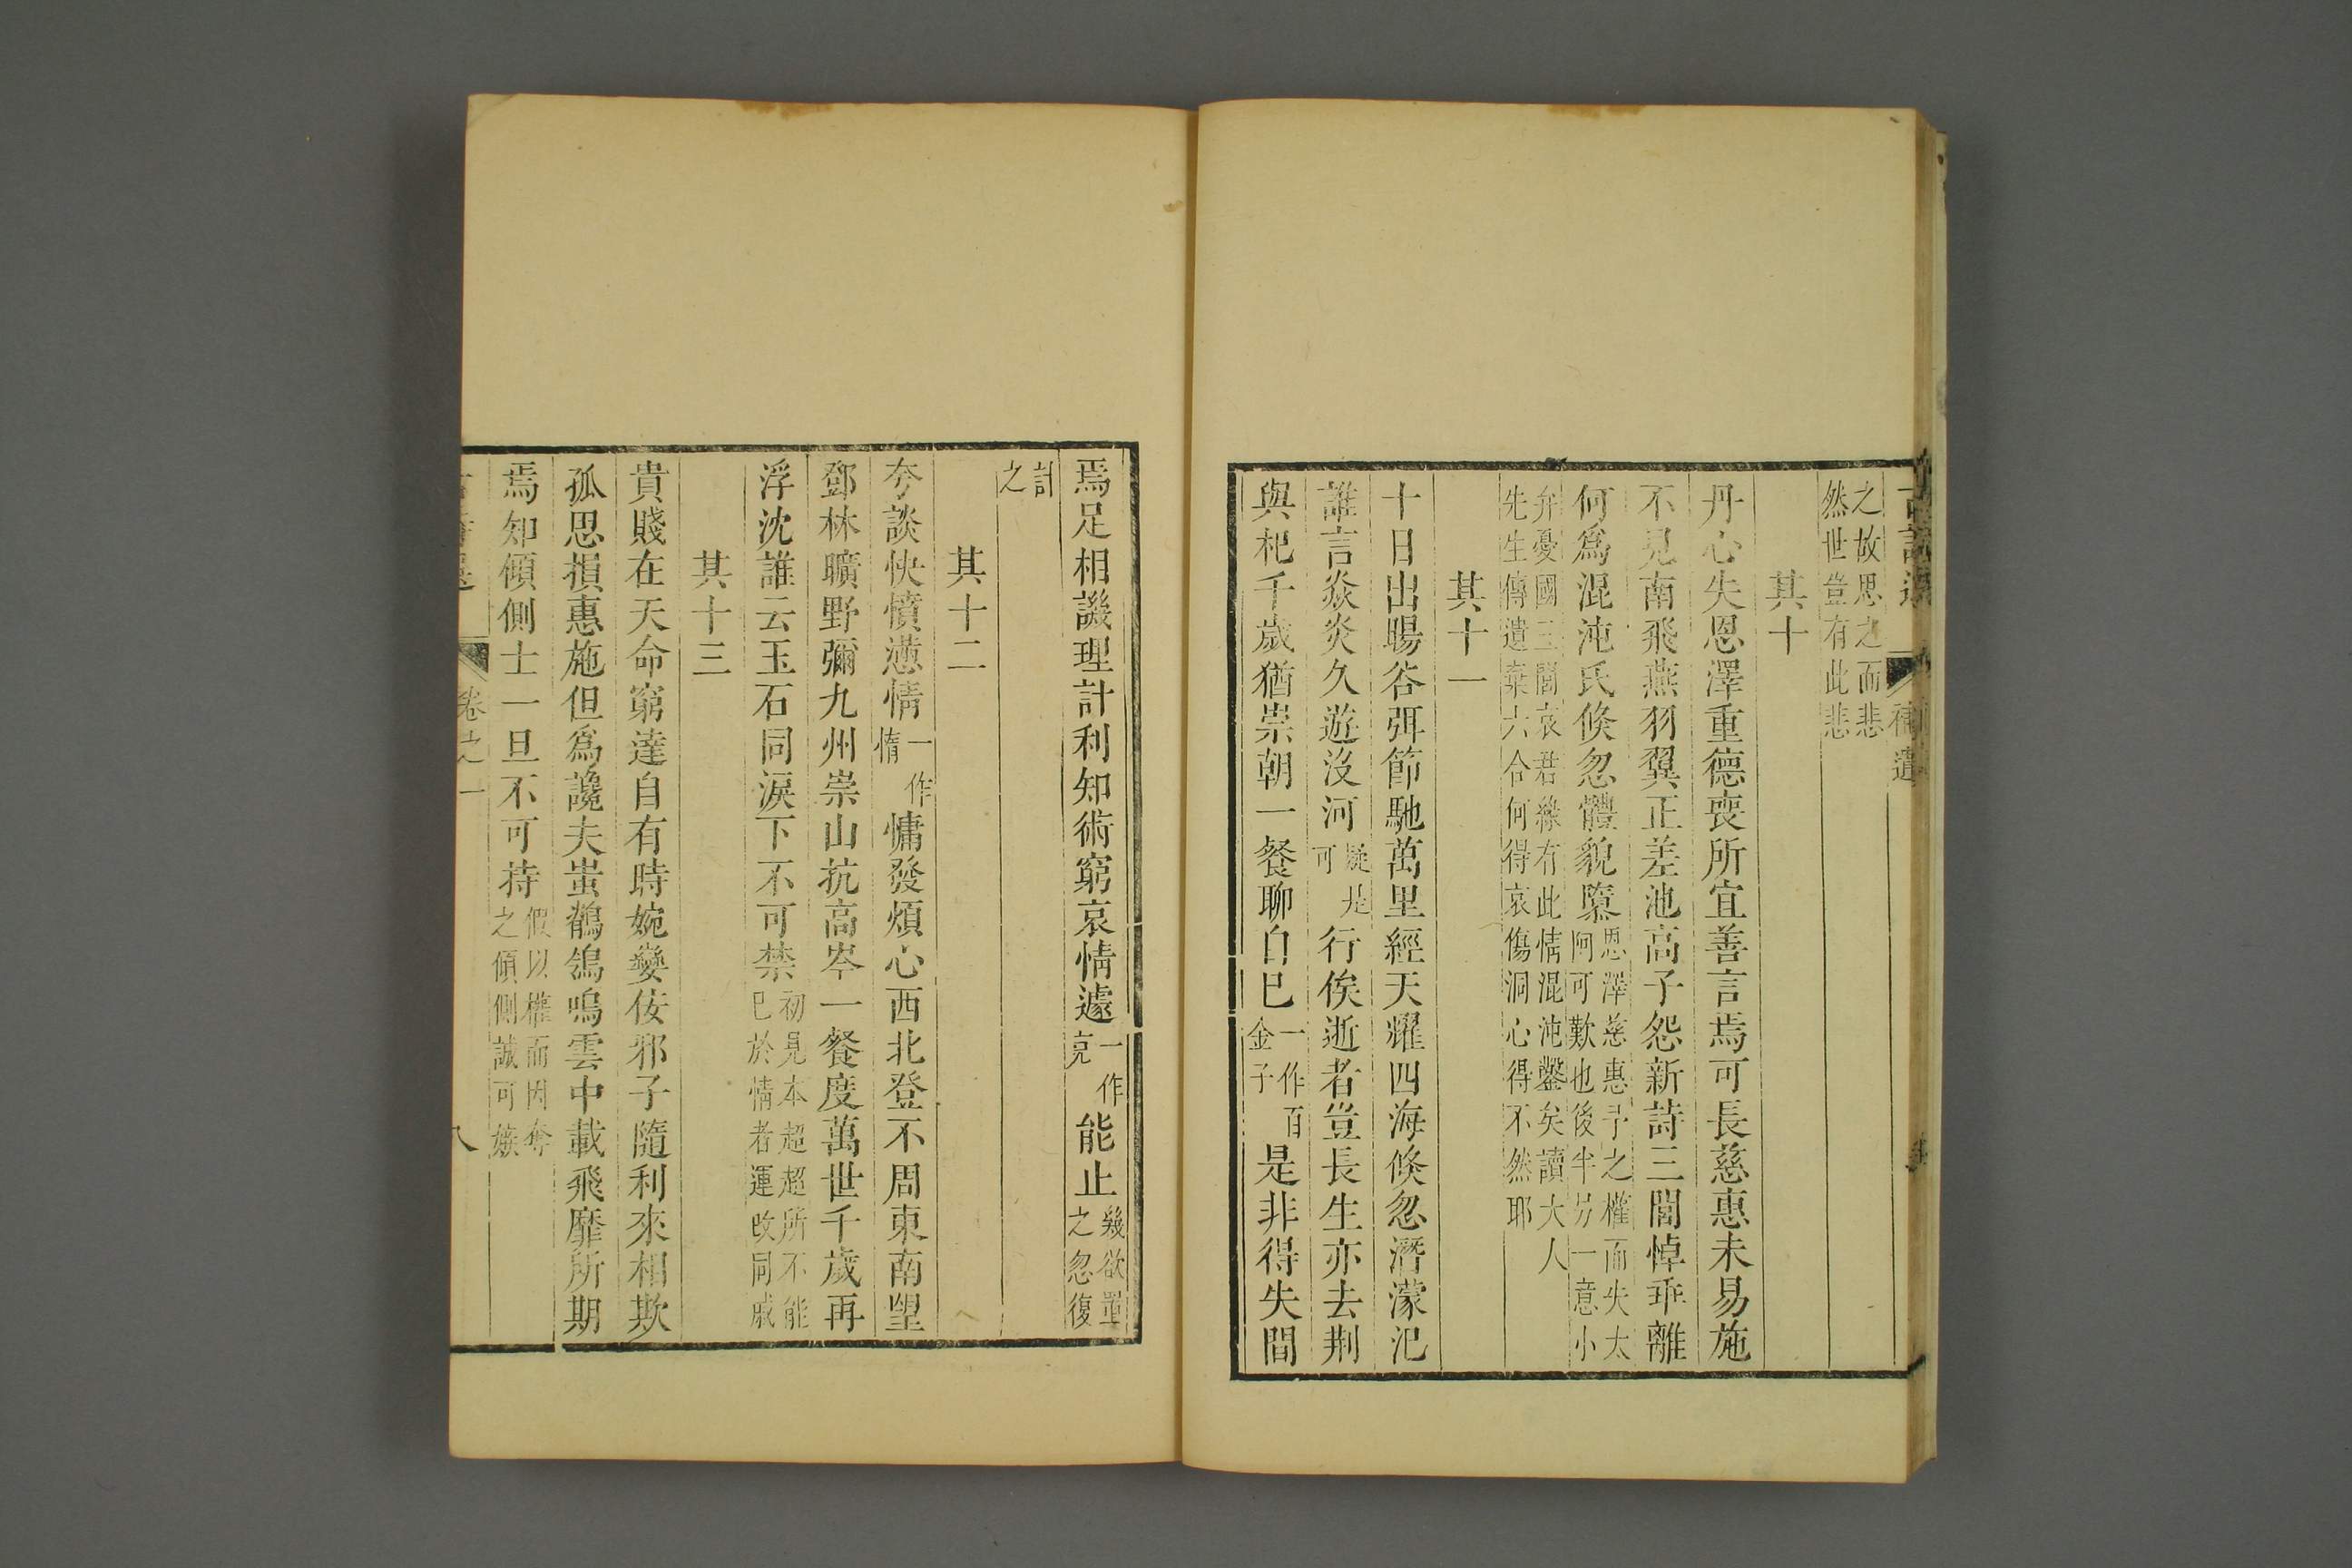 補遺
之故思之而悲
然世豈有此悲
其十
丹心失恩澤重德喪所宜善言焉可長慈惠未易施
不見南飛燕羽翼正差池高子怨新詩三閭悼乖離
何爲混沌氏倏忽體貌隳
恩澤慈惠予之權而失太
阿可歎也後半另一意小
弁憂國三閭哀君緣有此情混沌鑿矣讀大人
先生傳遺棄六合何得哀傷洞心得不然耶
其十一
十日出暘谷弭節馳萬里經天耀四海倏忽潛濛汜
誰言焱炎久遊沒河
疑是
可
行俟逝者豈長生亦去荆
與杞千歲猶崇朝一餐聊自已
一作百
金子
是非得失間
焉足相譏理計利知術窮哀情遽
一作
克
能止
幾欲置
之忽復
計
之
其十二
夸談快憤懣情
一作
惰
慵發煩心西北登不周東南望
鄧林曠野彌九州崇山抗高岑一餐度萬世千歲再
浮沈誰云玉石同淚下不可禁
初見本超超所不能
已於情者運改同戚
其十三
貴賤在天命窮達自有時婉孌佞邪子隨利來相欺
孤思損惠施但爲讒夫蚩鶺鴒鳴雲中載飛靡所期
焉知傾側士一旦不可持
假以權而因奪
之傾側誠可嫉
卷之一
八